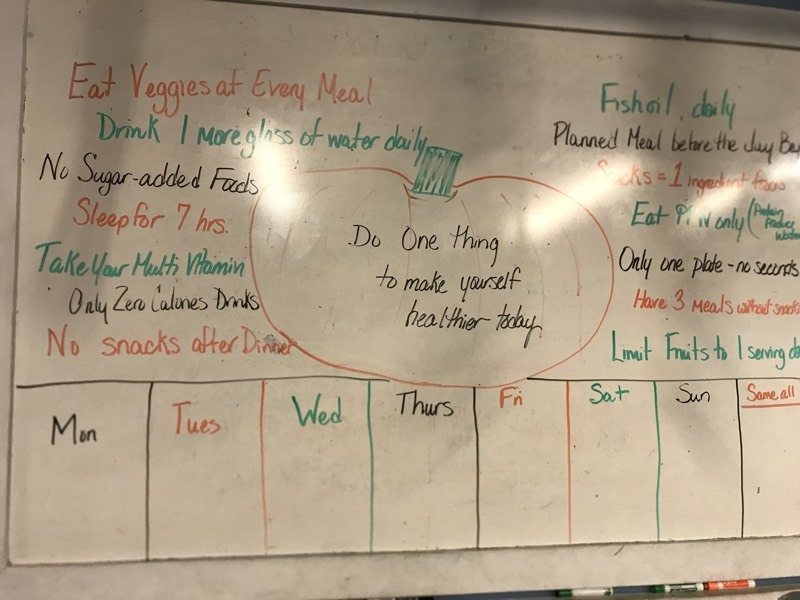 Eat Veggies at Every Meal
Drink 1 more glass of water daily
No Sugar-added Foods
Sleep for 7 hrs.
Take Your Multi Vitamin
Only Zero Calories Drinks
No snacks after Dinner
Do One thing
to make yourself
healthier today
Fish oil, daily
Planned Meal before the day Be
= 1 ingredient foods
Eat only (Protein
Produce
Water
Only one plate - no seconds
Have 3 Meals without snack
Limit Fruits to 1 serving da
Mon
Tues
Wed
Thurs
Fri
Sat
Sun
Same all